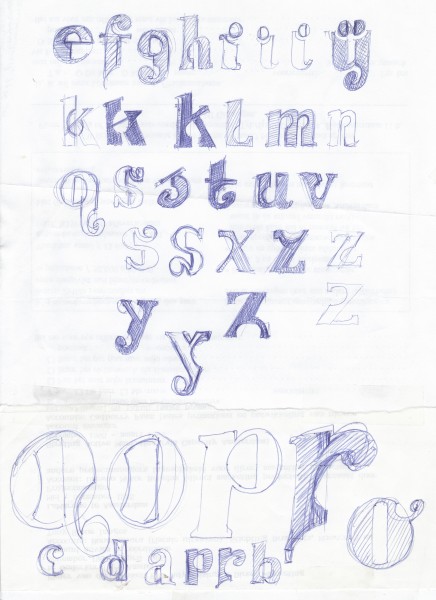 e f g h i i i ÿ
k k k L m n
q s s t u v
s s x z z
y z z
y
q o p r o
c d a p r b